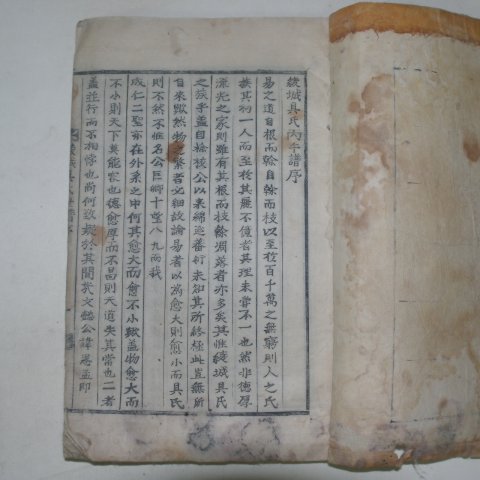 綾城具氏丙午譜序
易之道自根而榦自榦而枝以至於百千萬之無窮則人之氏
族其初一人而至於其麗不億者其理未嘗不一也然非德厚
流光之家則雖有其根而枝榦凋落者亦多矣其惟綾城具氏
之族乎盖自榦枝公以來綿遠蕃衍未知其所終極此豈無所
自來歟然物之繁者必細故論易者以爲愈大則愈小而具氏
則不然不惟名公巨卿十常八九而我
成仁二聖亦在外系之中何其愈大而愈不小歟盖物愈大而
不小則天下莫能容也德愈厚而不昌則天道失其當也二者
盖並行而不相悖也尚何致疑於其間哉文懿公諱思孟即
綾城具氏世譜序